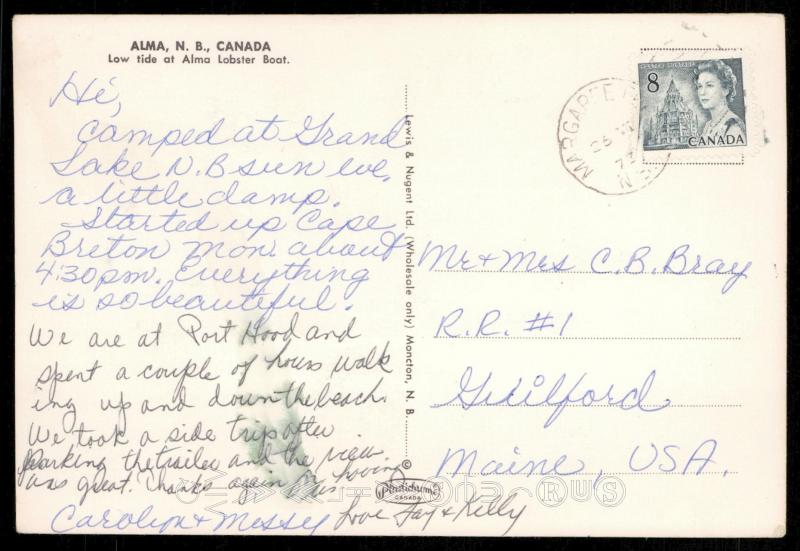 ALMA, N. B., CANADA
Low tide at Alma Lobster Boat.
Hi,
Camped at Grand
Lake N.B sun eve.
a little damp.
Started up Cape
Breton mon. about
4:30 pm. Everything
is so beautiful.
We are at Port Hood and
spent a couple of hours walk
ing up and down the beach.
We took a side trip after
parking the trailer and the view
was great. Thanks again for having
Carolyn + Missy Love Fay + Kelly
Lewis & Nugent Ltd. (Wholesale only) Moncton, N. B.
©
Plastichrome
CANADA
8
CANADA
MARGAREE
26 VI
73
N
Mr + Mrs C. B. Bray
R.R. #1
Guilford
Maine, USA.
R US